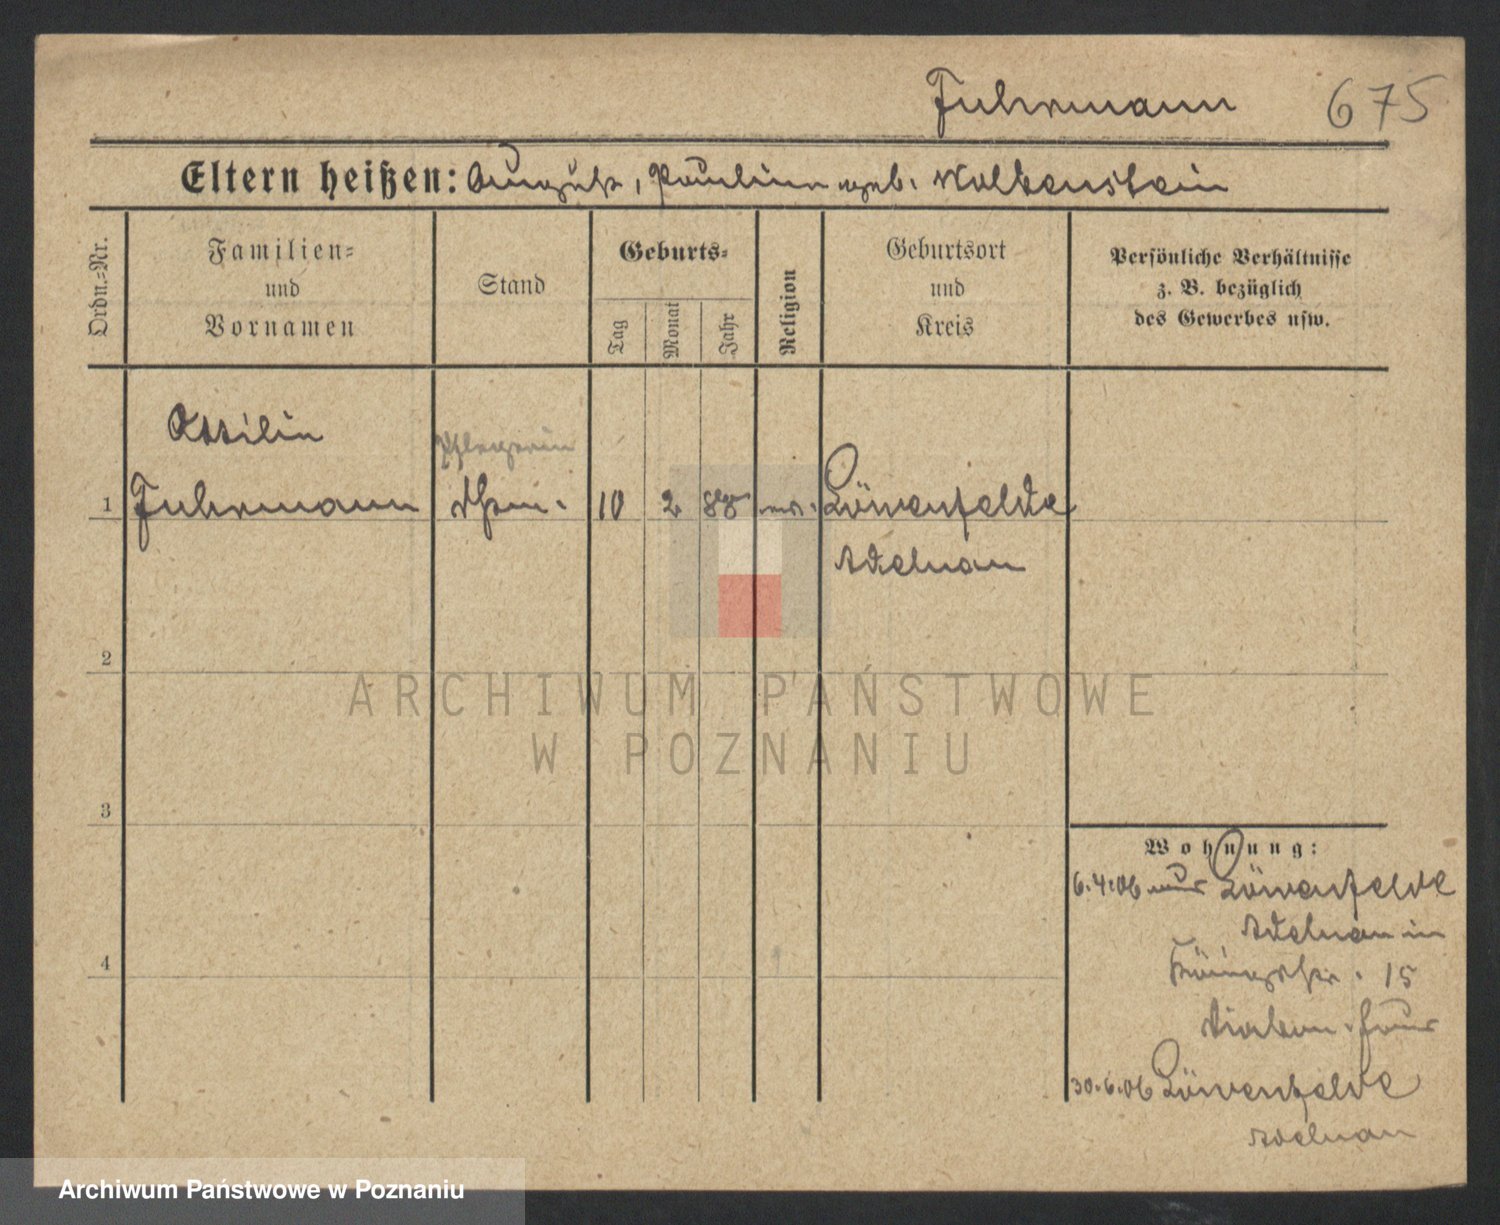 Fuhrmann 675
Eltern heißen: August, Pauline geb. Wolkenstein
Ordn.-Nr.
Familien- und Vornamen
Stand
Geburts-
Tag
Monat
Jahr
Religion
Geburtsort und Kreis
Persönliche Verhältnisse
z. B. bezüglich
des Gewerbes usw.
Ottilie
Pflegerin
1 Fuhrmann 10 2 88 ev. Löwenfelde
Adelnau
2
ARCHIWUM PAŃSTWOWE
W POZNANIU
3
Wohnung:
6.4.06 Löwenfelde
Adelnau in
Königstr. 15
30.6.06 Löwenfelde
Adelnau
4
Archiwum Państwowe w Poznaniu